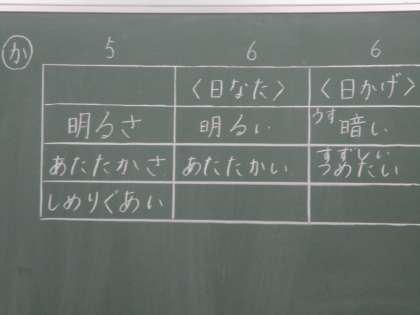 か 5 6 6
〈日なた〉 〈日かげ〉
明るさ 明るい うす暗い
すずしい
あたたかさ あたたかい つめたい
しめりぐあい